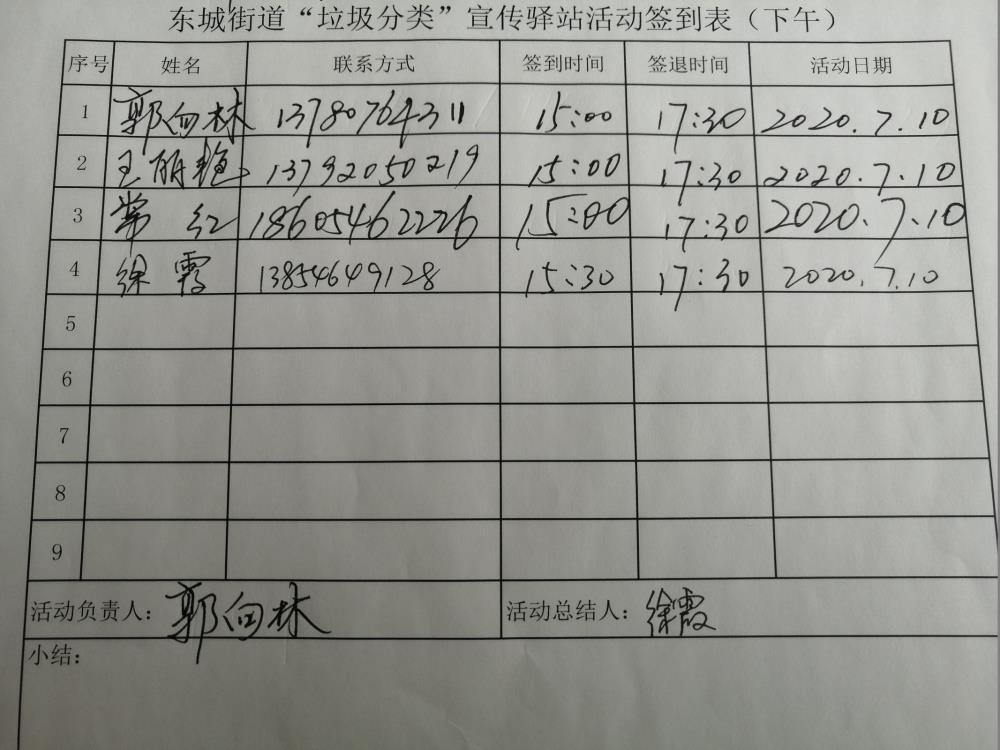 东城街道“垃圾分类”宣传驿站活动签到表（下午）
序号 姓名 联系方式 签到时间 签退时间 活动日期
1 郭向林 13780764311 15:00 17:30 2020.7.10
2 王丽艳 13792050219 15:00 17:30 2020.7.10
3 常红 18605462226 15:00 17:30 2020.7.10
4 徐霞 13854649128 15:30 17:30 2020.7.10
5
6
7
8
9
活动负责人：郭向林 活动总结人：徐霞
小结：